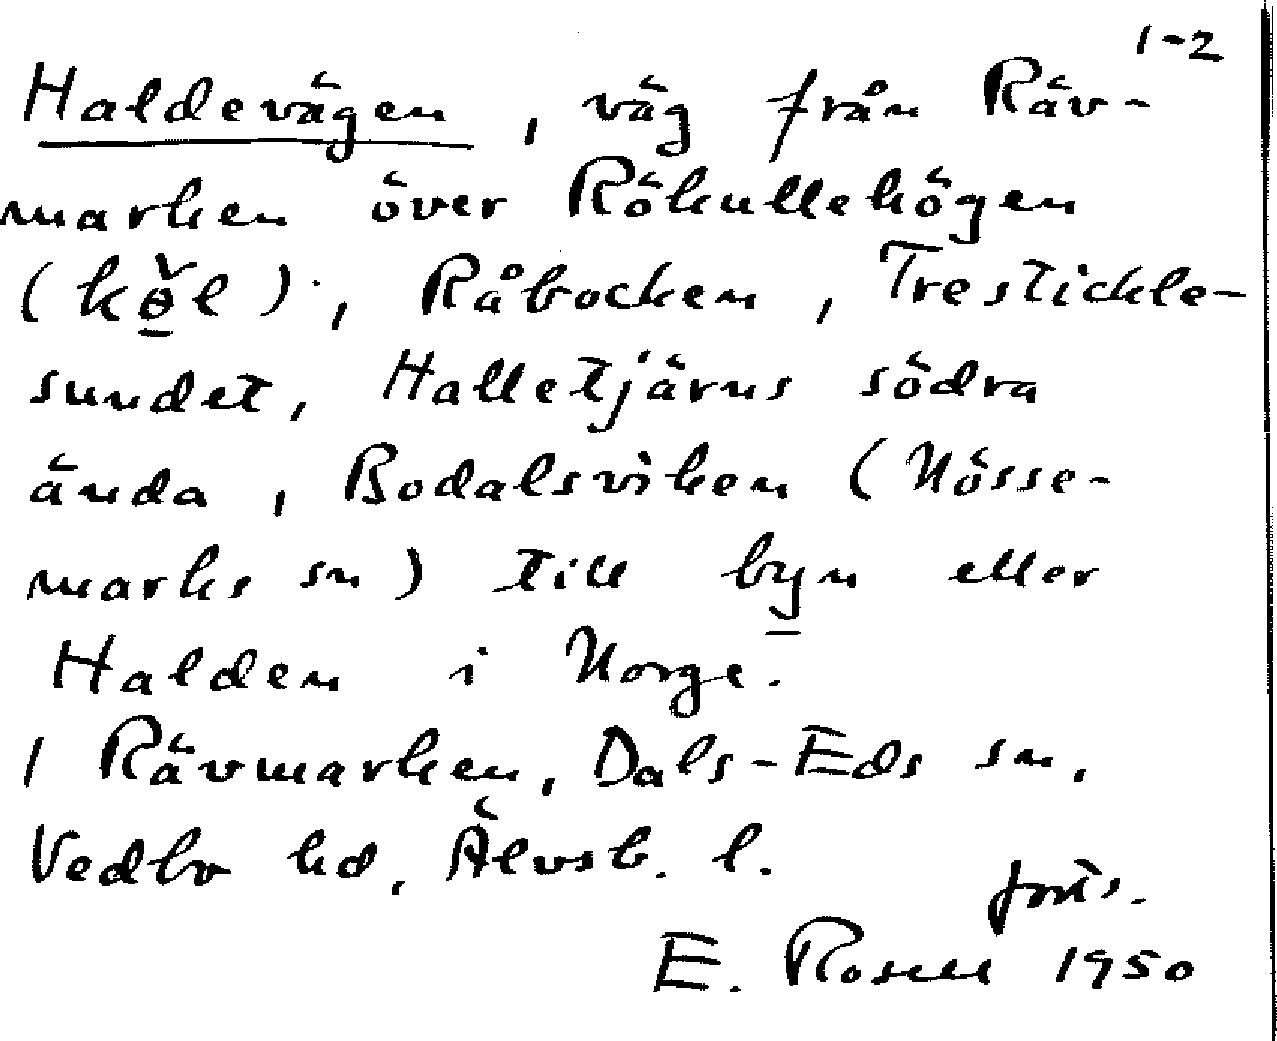 1-2
Haldevägen, väg från Räv-
marken över Rökullehögen
(kɵ̯̌l), Råbocken, Trestickle-
sundet, Halletjärns södra
ända, Bodalsviken (Nösse-
marks sn) till byn eller
Halden i Norge.
I Rävmarken, Dals-Eds sn,
Vedbo hd, Älvsb. l.
forts.
E. Rosell 1950